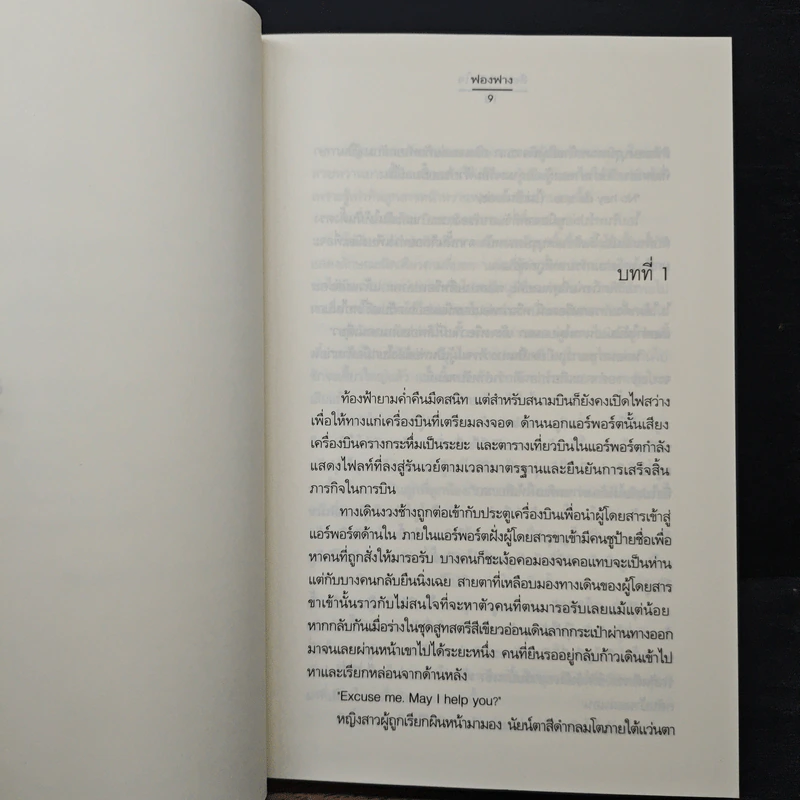 ฟองฟาง
9
บทที่ 1
ท้องฟ้ายามค่ำคืนมืดสนิท แต่สำหรับสนามบินก็ยังคงเปิดไฟสว่าง
เพื่อให้ทางแก่เครื่องบินที่เตรียมลงจอด ด้านนอกแอร์พอร์ตนั้นเสียง
เครื่องบินครางกระหึ่มเป็นระยะ และตารางเที่ยวบินในแอร์พอร์ตกำลัง
แสดงไฟลท์ที่ลงสู่รันเวย์ตามเวลามาตรฐานและยืนยันการเสร็จสิ้น
ภารกิจในการบิน
ทางเดินงวงช้างถูกต่อเข้ากับประตูเครื่องบินเพื่อนำผู้โดยสารเข้าสู่
แอร์พอร์ตด้านใน ภายในแอร์พอร์ตฝั่งผู้โดยสารขาเข้ามีคนชูป้ายชื่อเพื่อ
หาคนที่ถูกสั่งให้มารอรับ บางคนก็ชะเง้อคอมองจนคอแทบจะเป็นห่าน
แต่กับบางคนกลับยืนนิ่งเฉย สายตาที่เหลือบมองทางเดินของผู้โดยสาร
ขาเข้านั้นราวกับไม่สนใจที่จะหาตัวคนที่ตนมารอรับเลยแม้แต่น้อย
หากกลับกันเมื่อร่างในชุดสูทสตรีสีเขียวอ่อนเดินลากกระเป๋าผ่านทางออก
มาจนเลยผ่านหน้าเขาไปได้ระยะหนึ่ง คนที่ยืนรออยู่กลับก้าวเดินเข้าไป
หาและเรียกหล่อนจากด้านหลัง
"Excuse me. May I help you?"
หญิงสาวผู้ถูกเรียกผินหน้ามามอง นัยน์ตาสีดำกลมโตภายใต้แว่นตา